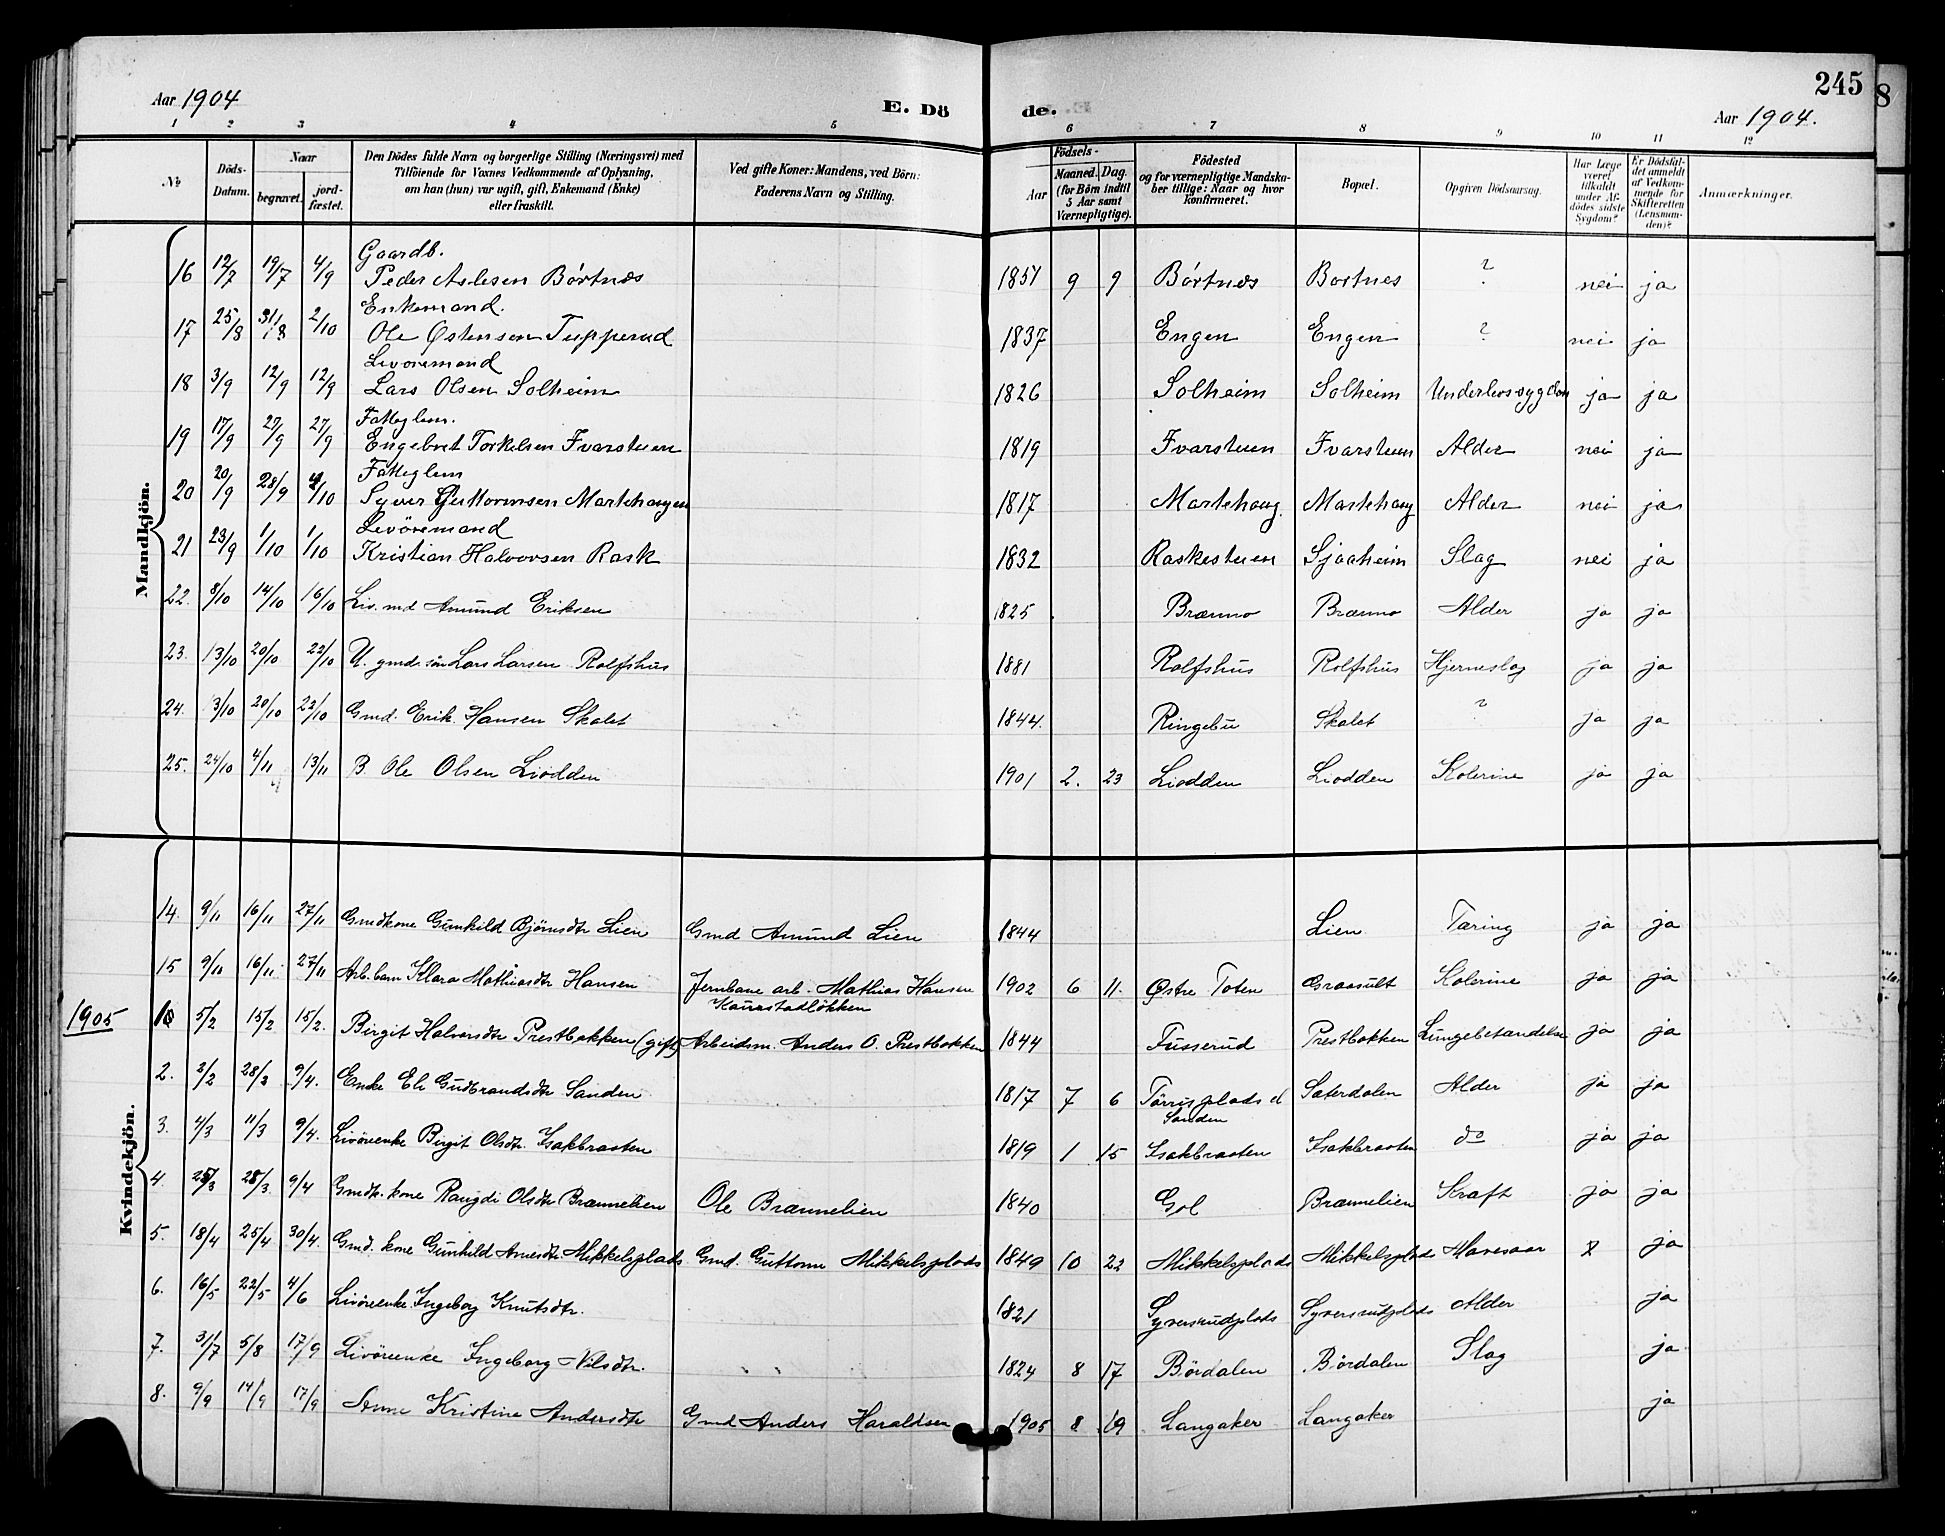 245
8
Aar 1904
E. Dö
de.
Aar 1904.
1 2 3 4 5 6 7 8 9 10 11 12
No
Döds-Datum.
Naar
begravet.
jord-fæstet.
Den Dödes fulde Navn og borgerlige Stilling (Næringsvei) med
Tilföiende for Voxnes Vedkommende af Oplysning,
om han (hun) var ugift, gift, Enkemand (Enke)
eller fraskilt.
Ved gifte Koner: Mandens, ved Börn:
Faderens Navn og Stilling.
Födsels-
Aar
Maaned. Dag
(for Börn indtil
5 Aar samt
Værnepligtige).
Födested
og for værnepligtige Mandska-
ber tillige: Naar og hvor
konfirmeret.
Bopæl.
Opgiven Dödsaarsag.
Har Læge
været
tilkaldt
under Af-
dödes sidste
Sygdom?
Er Dödsfal-
det anmeldt
af Vedkom-
mende for
Skifteretten
(Lensman-
den)?
Anmærkninger.
Mandkjön.
Gaardb.
16 12/7 19/7 4/9 Peder Aslesen Börtnes 1851 9 9 Börtnes Bortnes ? nei ja
Enkemand.
17 25/8 31/8 2/10 Ole Østensen Tupperud 1837 Engen Engen ? nei ja
Livöremand
18 3/9 12/9 12/9 Lars Olsen Solheim 1826 Solheim Solheim Underlivssygdom ja ja
Fatteglem.
19 17/9 27/9 27/9 Engebret Torkelsen Ivarstuen 1819 Ivarstuen Ivarstuen Alder nei ja
Fatteglem
20 20/9 28/9 /10 Syver Guttormsen Martehaugen 1817 Martehaug. Martehaug Alder nei ja
Livöremand
21 23/9 1/10 1/10 Kristian Halvorsen Rask 1832 Raskestuen Sjaaheim Slag nei ja
22. 8/10 14/10 16/10 Liv. md Amund Eriksen 1825 Brænno Brænno Alder ja ja
23. 13/10 20/10 22/10 U. gmds sön Lars Larsen Rolfshus 1881 Rolfshus Rolfshus Hjerneslag ja ja
24. 13/10 20/10 22/10 Gmd. Erik Hansen Skalet 1844. Ringebu Skalet ? ja ja
25. 24/10 4/11 13/11 B. Ole Olsen Liodden 1901 2. 23 Liodden Liodden Kolerine ja ja
Kvindekjön.
14. 9/11 16/11 27/11 Gmdkone Gunhild Björnsdtr Lien Gmd Amund Lien 1844 Lien Tæring ja ja
15 9/11 16/11 27/11 Arb. barn Klara Mathiasdtr Hansen Jernbane arb. Mathias Hansen 1902 6 11. Østre Toten Graasult Kolerine ja ja
Kaurstadlökken
1905 1 5/2 15/2 15/2. Birgit Halvorsdtr Prestbakken (gift) Arbeidsm. Anders O. Prestbakken 1844 Fusserud Prestbakken Lungebetændelse ja ja
2. 2/2 28/2 9/4. Enke Eli Gudbrandsdtr Sanden 1817 7 6 Törrisplads d Sæterdalen Alder ja ja
Sanden
3. 4/3 11/3 9/4. Livörenke Birgit Olsdtr. Isakbraaten 1819 1 15 Isakbraaten Isakbraaten do ja ja
4. 25/3 28/3. 9/4 Gmdk. kone Rangdi Olsdtr Brænnelien Ole Brænnelien 1840 Gol Brænnelien Kræft ja ja
5. 18/4 25/4 30/4. Gmd. kone Gunhild Arnesdtr. Mikkelsplads Gmd. Guttorm Mikkelsplads 1849 10 22 Mikkelsplads Mikkelsplads Mavesaar ja
6. 16/5 22/5 4/6 Livörenke Ingeborg Knutsdtr. 1821 Syversrudplads Syversrudplads Alder ja
7. 31/7 5/8 17/9 Livörenke Ingeborg Nilsdtr. 1824 8 17 Bördalen Bördalen Slag ja
8. 9/9 14/9 17/9 Anne Kristine Andersdtr Gmd Anders Haraldsen 1905 8 19 Langaker Langaker ja